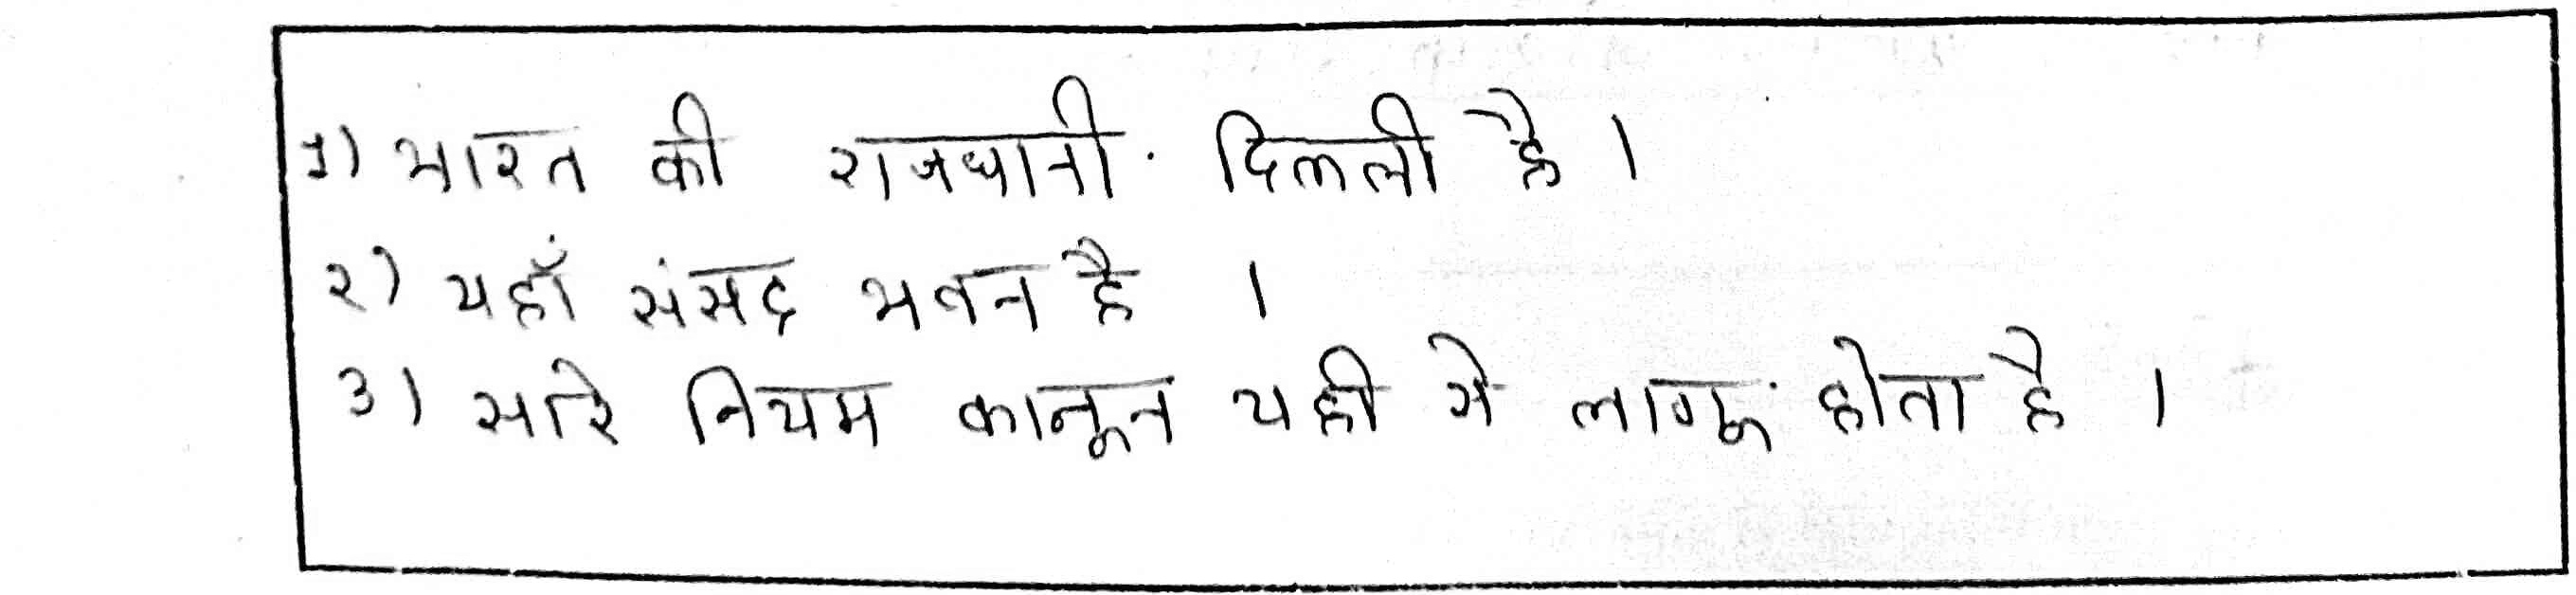 १) भारत की राजधानी दिल्ली है ।
२) यहाँ संसद भवन है ।
३) सारे नियम कानून यही से लागू होता है ।